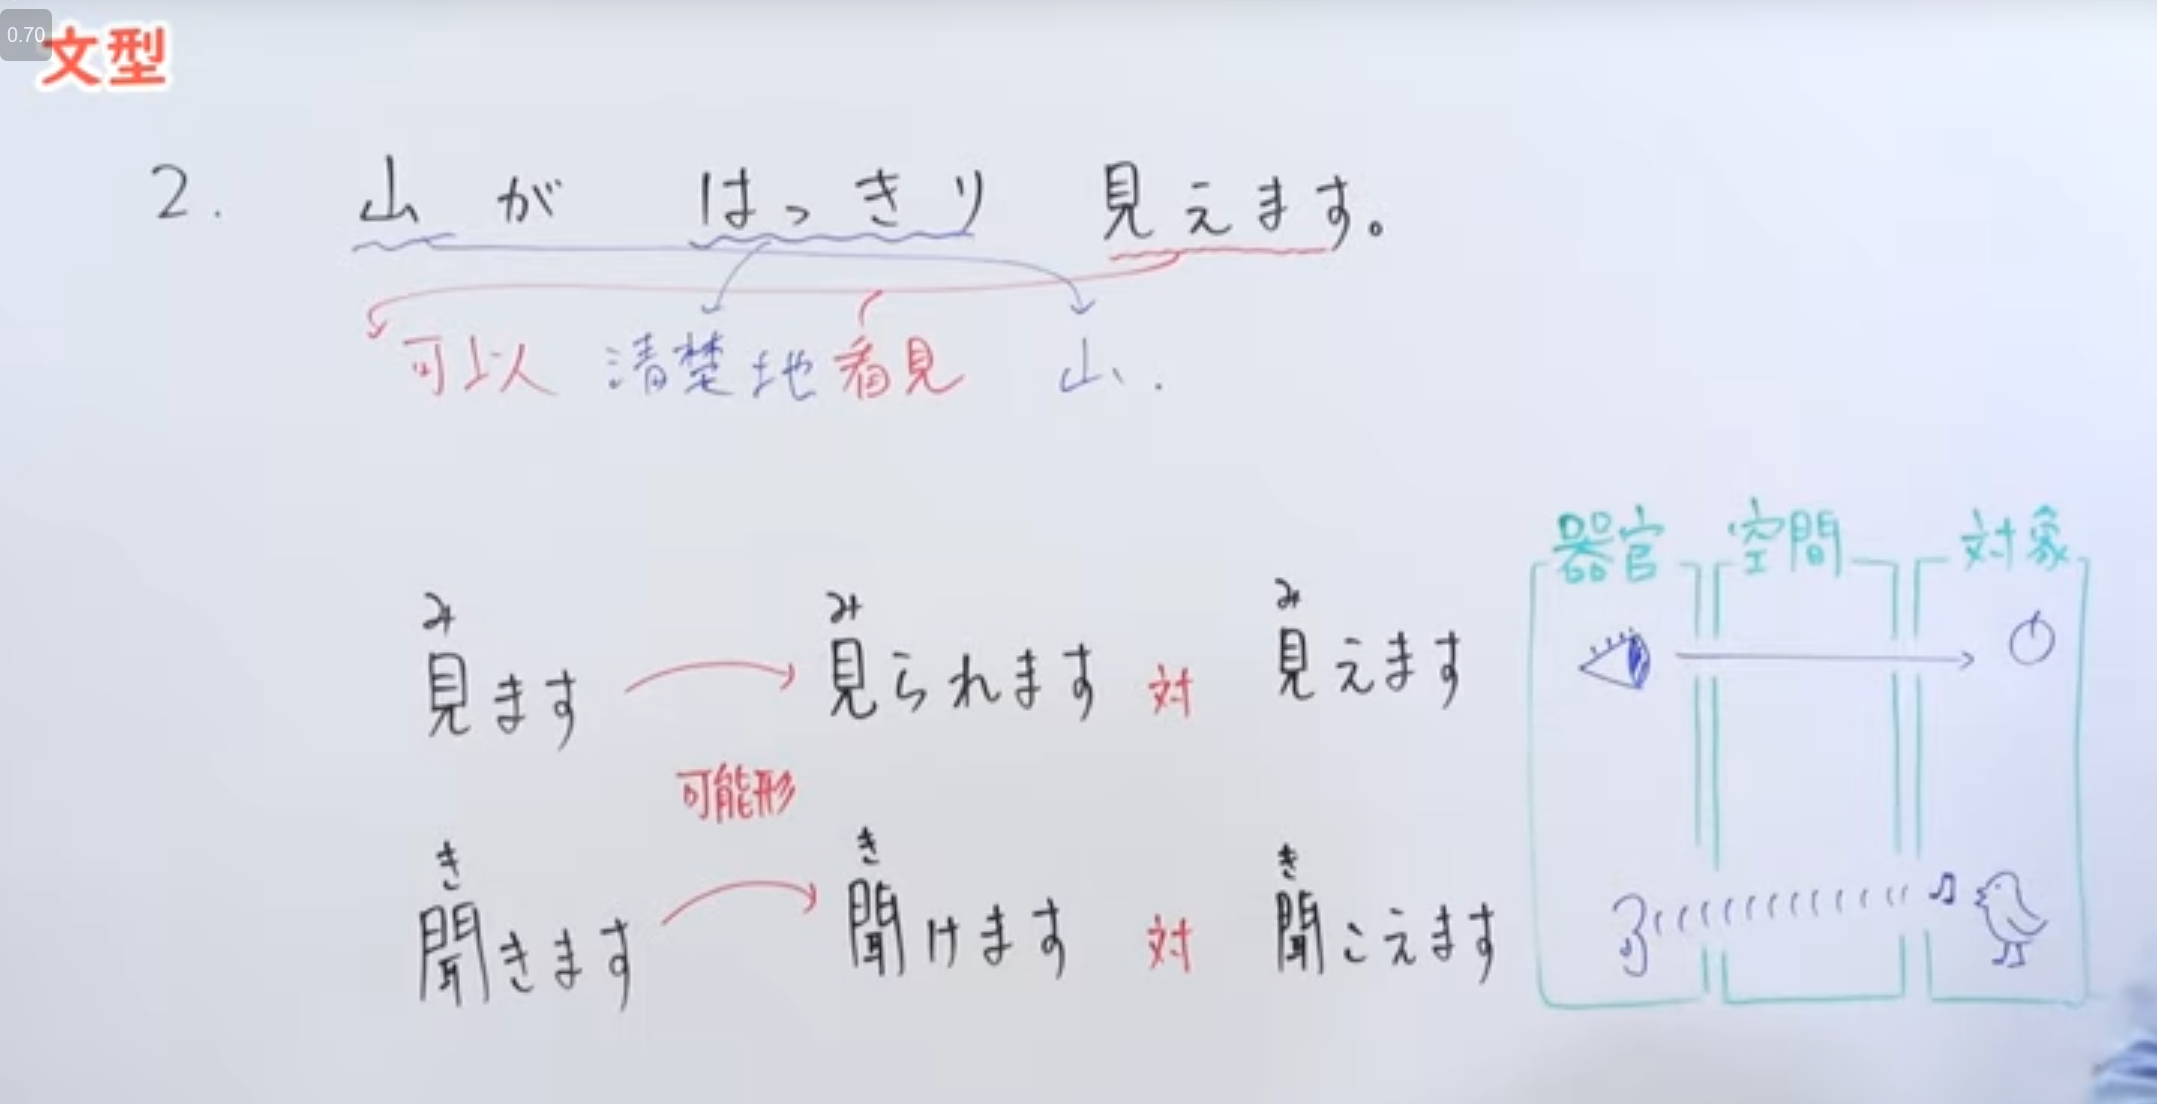 0.70
文型
2. 山が はっきり 見えます。
可以 清楚地看見 山.
器官 空間 対象
み み み
見ます 見られます 対 見えます
可能形
き き き
聞きます 聞けます 対 聞こえます